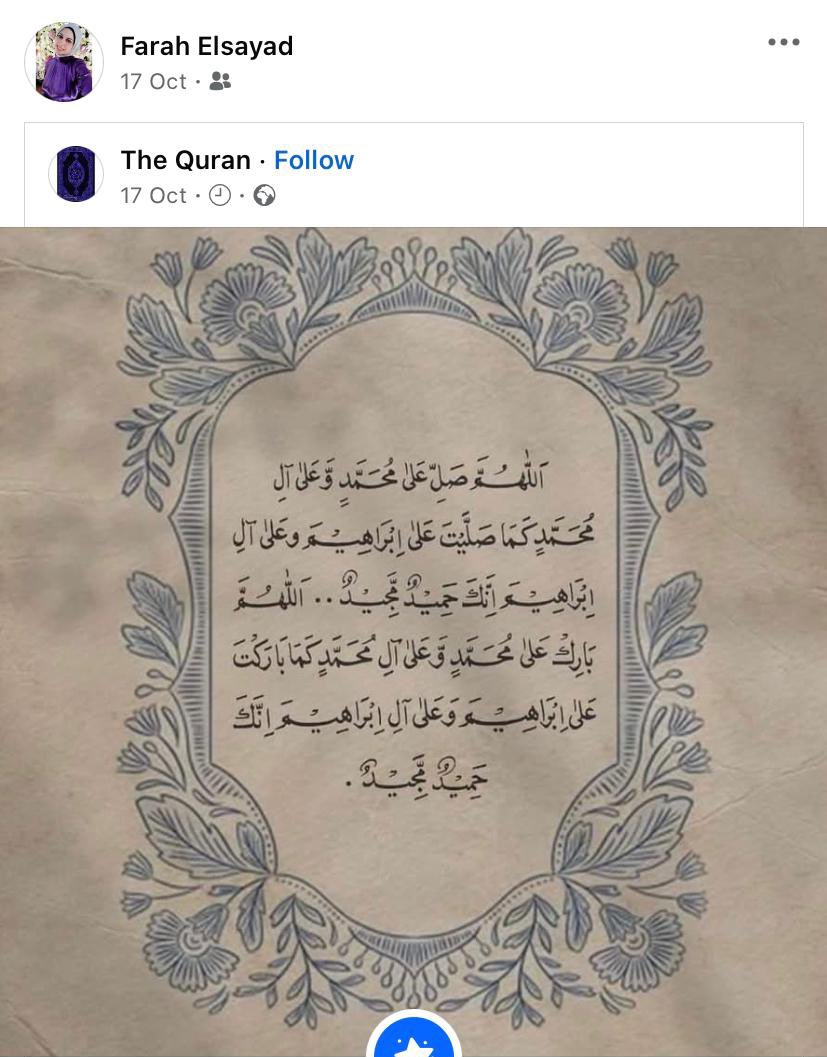 Farah Elsayad
17 Oct ·
The Quran · Follow
17 Oct · ·
اَللّٰهُمَّ صَلِّ عَلىٰ مُحَمَّدٍ وَّعَلىٰ اٰلِ
مُحَمَّدٍ كَمَا صَلَّيْتَ عَلىٰ اِبْرَاهِيْمَ وعَلىٰ اٰلِ
اِبْرَاهِيْمَ اِنَّكَ حَمِيْدٌ مَّجِيْدٌ .. اَللّٰهُمَّ
بَارِكْ عَلىٰ مُحَمَّدٍ وَّعَلىٰ اٰلِ مُحَمَّدٍ كَمَا بَارَكْتَ
عَلىٰ اِبْرَاهِيْمَ وَعَلىٰ اٰلِ اِبْرَاهِيْمَ اِنَّكَ
حَمِيْدٌ مَّجِيْدٌ .